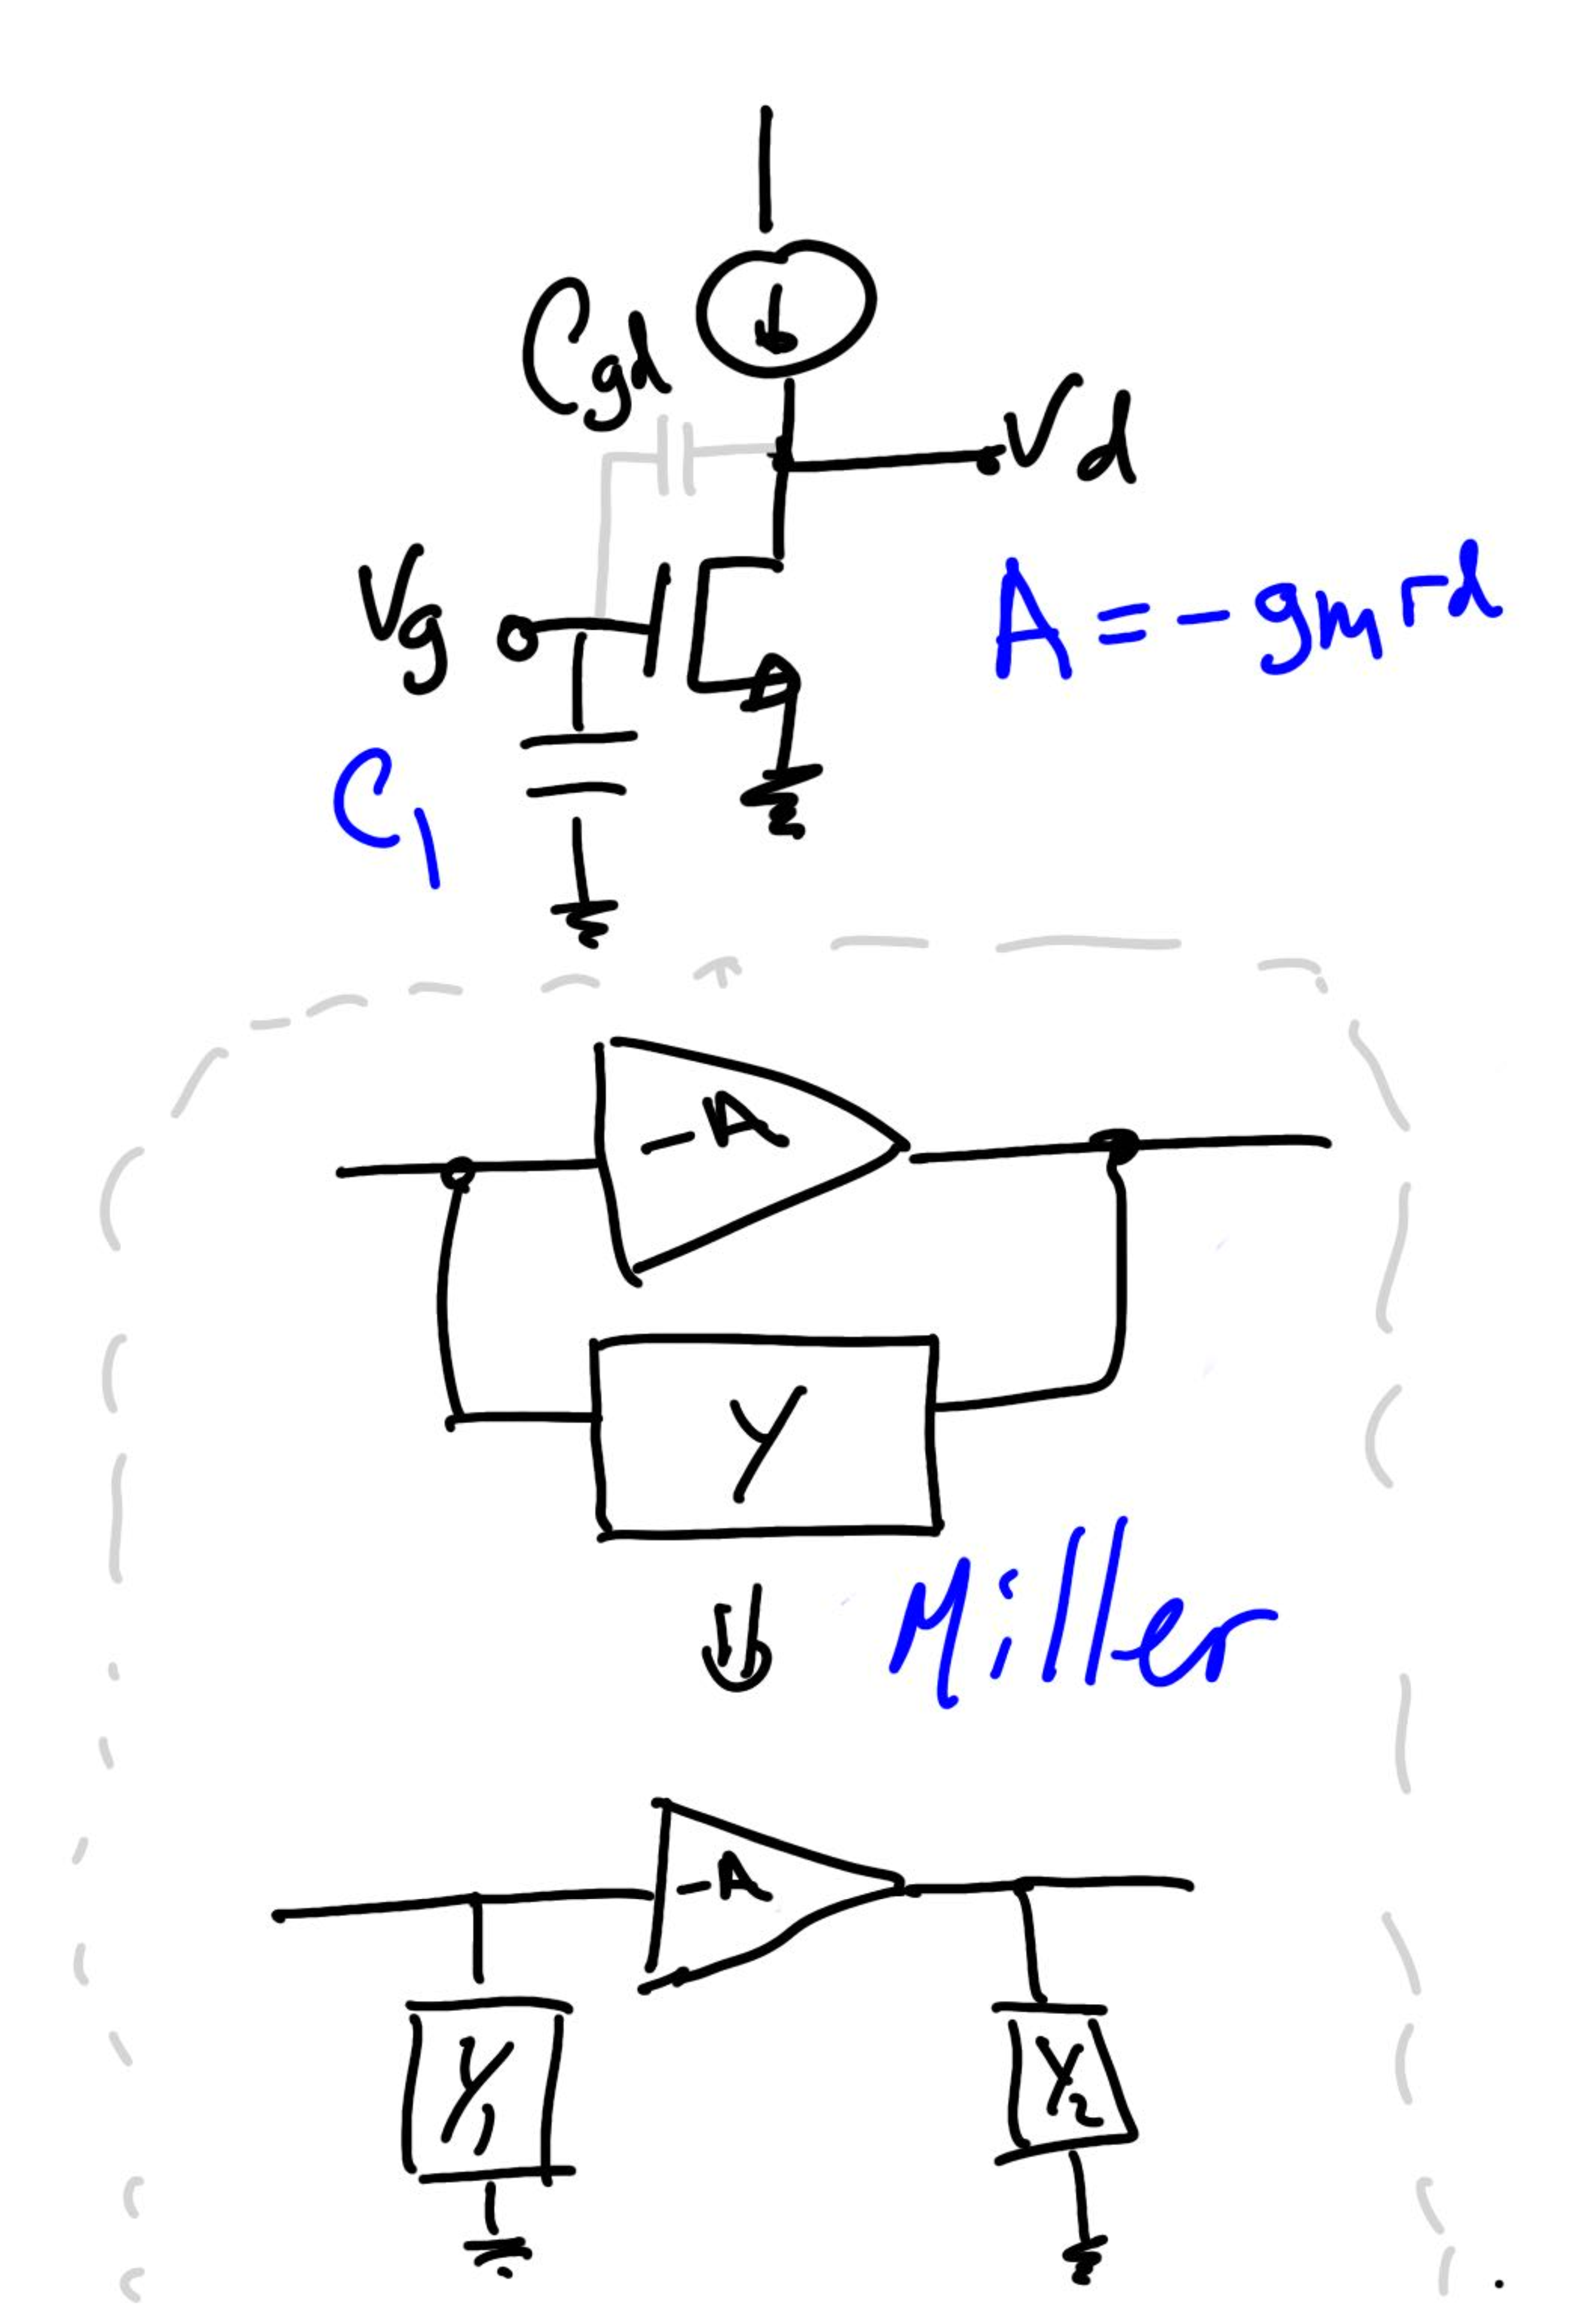 Cgd
Vd
Vg
A = - gm rd
C1
-A
Y
Miller
-A
Y1
Y2